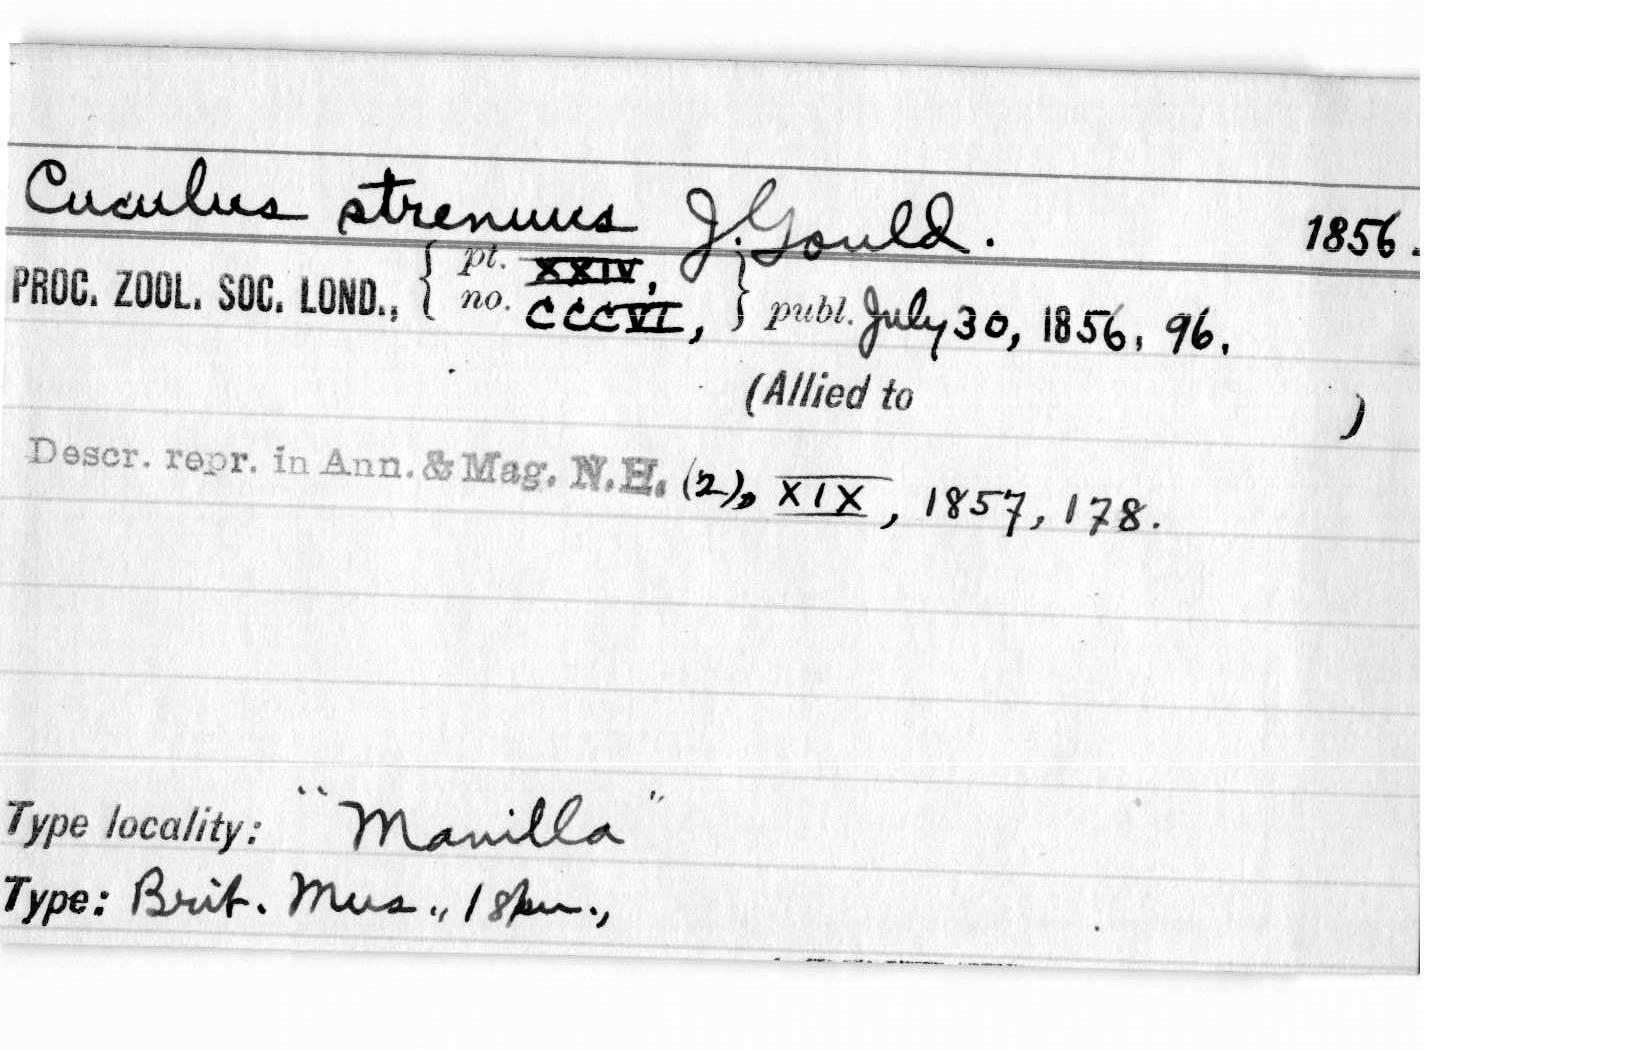 Cuculus strenuus J. Gould. 1856.
PROC. ZOOL. SOC. LOND., { pt. XXIV, no. CCCVI, } publ. July 30, 1856, 96.
(Allied to )
Descr. repr. in Ann. & Mag. N.H. (2), XIX, 1857, 178.
Type locality: "Manilla"
Type: Brit. Mus., 1 spm.,